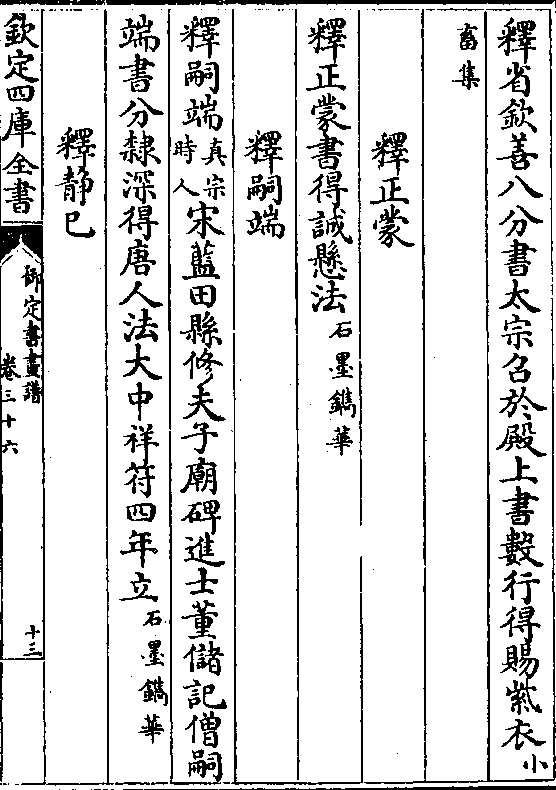 釋省欽善八分書太宗召於殿上書數行得賜紫衣小
畜集
釋正蒙
釋正蒙書得誠懸法石墨鐫華
釋嗣端
釋嗣端真宗時人宋藍田縣修夫子廟碑進士董儲記僧嗣
端書分隸深得唐人法大中祥符四年立石墨鐫華
釋靜已
欽定四庫全書
御定書畫譜
卷三十六
十三